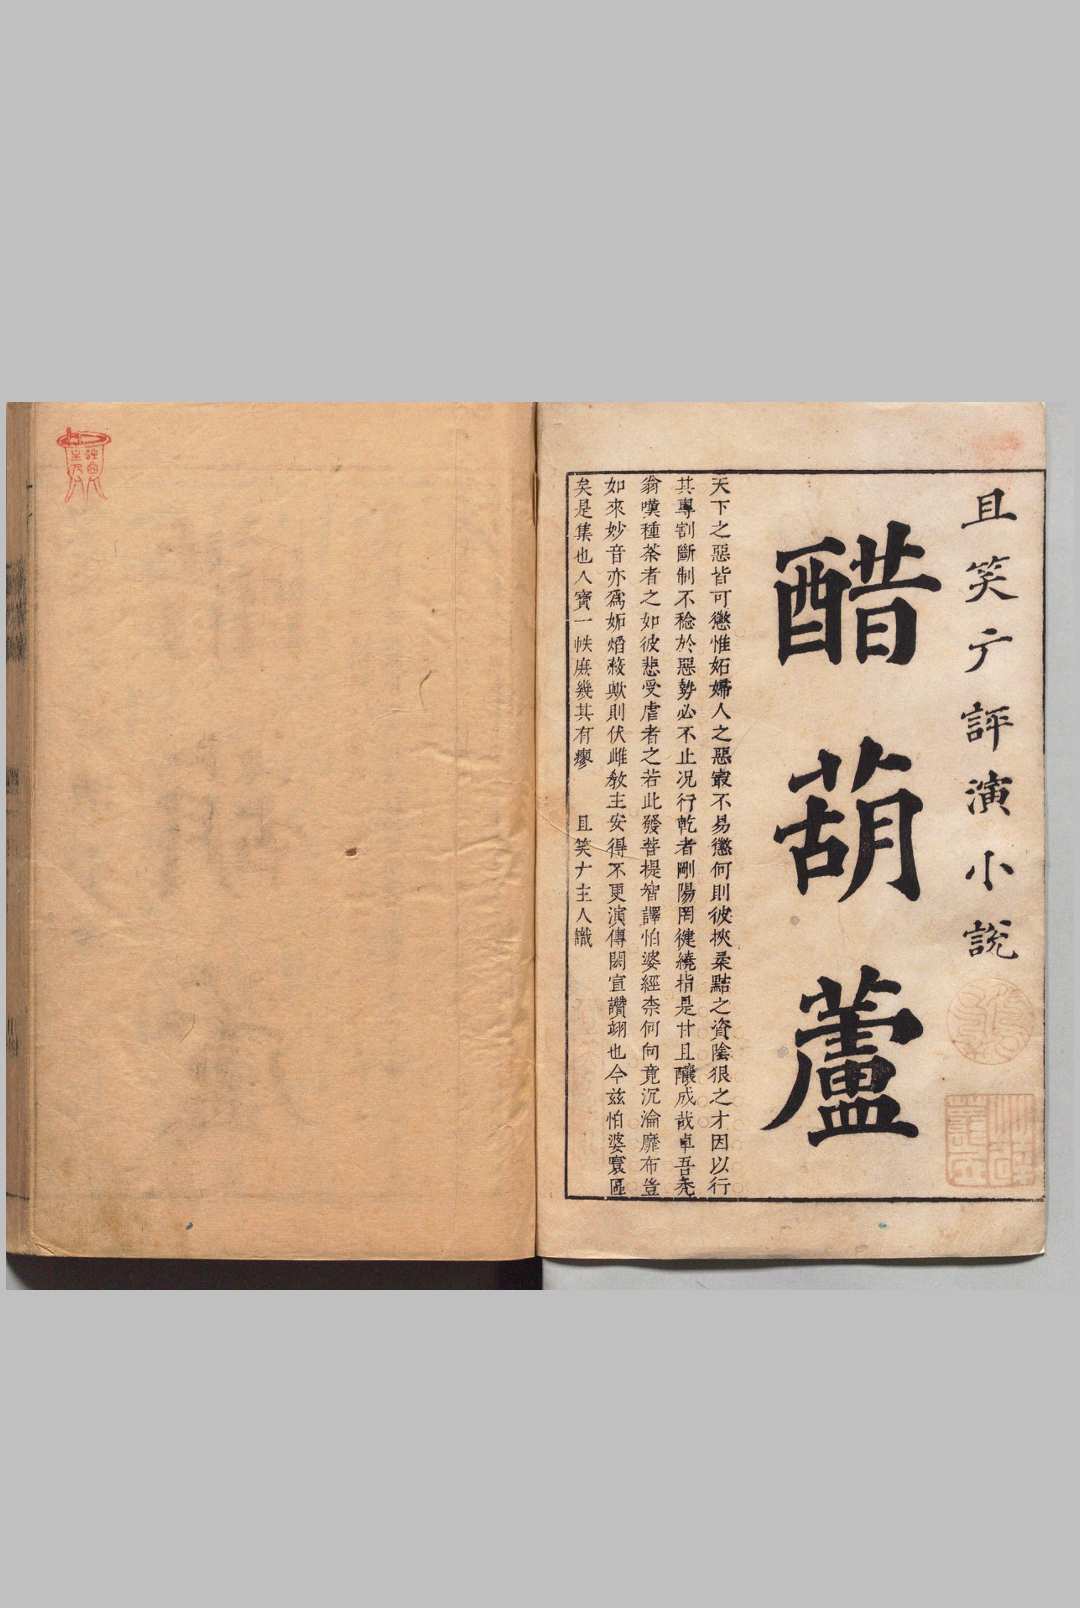 且笑广評演小説
醋葫蘆
天下之惡皆可懲惟妬婦人之惡㝡不易懲何則彼挾柔黠之資陰狠之才因以行
其專割斷制不稔於惡勢必不止况行乾者剛陽罔徤繞指是甘且釀成哉卓吾禿
翁嘆種荼者之如彼悲受虐者之若此發菩提智譯怕婆經柰何向竟沉淪靡布豈
如來妙音亦爲妬㷔殺歟則伏雌敎主安得不更演傳閎宣讚翊也今兹怕婆寰區
矣是集也人寶一帙庶幾其有瘳 且笑广主人識